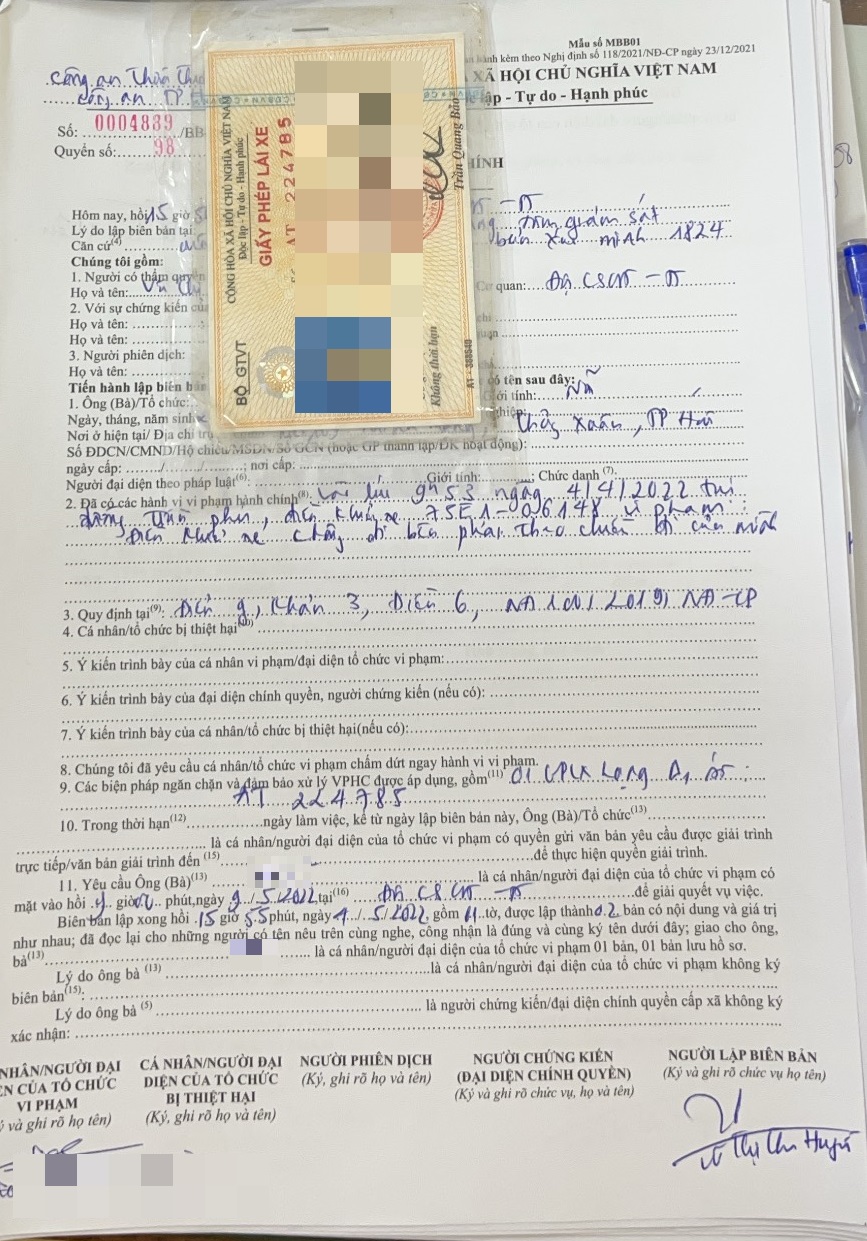 Mẫu số MBB01
hành kèm theo Nghị định số 118/2021/NĐ-CP ngày 23/12/2021
Công an
XÃ HỘI CHỦ NGHĨA VIỆT NAM
Công an TP.
lập - Tự do - Hạnh phúc
Số: 0004889 /BB
Quyển số: 98
HÍNH
CỘNG HÒA XÃ HỘI CHỦ NGHĨA VIỆT NAM
Độc lập - Tự do - Hạnh phúc
GIẤY PHÉP LÁI XE
AT 224785
BỘ GTVT
Không thời hạn
Trần Quang Bảo
Hôm nay, hồi 15 giờ
Lý do lập biên bản tại:
Căn cứ(4)
giám sát
1824
Chúng tôi gồm:
1. Người có thẩm quyền
Họ và tên:
Cơ quan: Đội CSGT
2. Với sự chứng kiến của
Họ và tên:
Họ và tên:
3. Người phiên dịch:
Họ và tên:
Tiến hành lập biên bản
có tên sau đây:
1. Ông (Bà)/Tổ chức:
Giới tính: Nữ
Ngày, tháng, năm sinh
Nơi ở hiện tại/ Địa chỉ trụ
Thủy Xuân, TP Huế
Số ĐDCN/CMND/Hộ chiếu/MSDN/Số GCN (hoặc GP thành lập/ĐK hoạt động):
ngày cấp: ..../..../....; nơi cấp:
Người đại diện theo pháp luật(6): Giới tính: ; Chức danh (7):
2. Đã có các hành vi vi phạm hành chính(8): Vào lúc 9h53 ngày 4/4/2022 tại
đường , điều khiển xe 75E1-036148 vi phạm:
Điều khiển xe không đi bên phải theo chiều đi của mình
3. Quy định tại(9): Điểm g, Khoản 3, Điều 6, NĐ 100/2019/NĐ-CP
4. Cá nhân/tổ chức bị thiệt hại(10)
5. Ý kiến trình bày của cá nhân vi phạm/đại diện tổ chức vi phạm:
6. Ý kiến trình bày của đại diện chính quyền, người chứng kiến (nếu có):
7. Ý kiến trình bày của cá nhân/tổ chức bị thiệt hại(nếu có):
8. Chúng tôi đã yêu cầu cá nhân/tổ chức vi phạm chấm dứt ngay hành vi vi phạm.
9. Các biện pháp ngăn chặn và đảm bảo xử lý VPHC được áp dụng, gồm(11) 01 GPLX hạng A1 số:
AT 224785
10. Trong thời hạn(12) ngày làm việc, kể từ ngày lập biên bản này, Ông (Bà)/Tổ chức(13)
là cá nhân/người đại diện của tổ chức vi phạm có quyền gửi văn bản yêu cầu được giải trình
trực tiếp/văn bản giải trình đến (15) để thực hiện quyền giải trình.
11. Yêu cầu Ông (Bà)(13) là cá nhân/người đại diện của tổ chức vi phạm có
mặt vào hồi giờ phút, ngày 9/5/2022 tại(16) Đội CSGT để giải quyết vụ việc.
Biên bản lập xong hồi 15 giờ 55 phút, ngày 4/5/2022, gồm tờ, được lập thành 02 bản có nội dung và giá trị
như nhau; đã đọc lại cho những người có tên nêu trên cùng nghe, công nhận là đúng và cùng ký tên dưới đây; giao cho ông,
bà(13) là cá nhân/người đại diện của tổ chức vi phạm 01 bản, 01 bản lưu hồ sơ.
Lý do ông bà (13) là cá nhân/người đại diện của tổ chức vi phạm không ký
biên bản(15):
Lý do ông bà (5) là người chứng kiến/đại diện chính quyền cấp xã không ký
xác nhận:
NHÂN/NGƯỜI ĐẠI
ỆN CỦA TỔ CHỨC
VI PHẠM
ý và ghi rõ họ tên)
CÁ NHÂN/NGƯỜI ĐẠI
DIỆN CỦA TỔ CHỨC
BỊ THIỆT HẠI
(Ký, ghi rõ họ và tên)
NGƯỜI PHIÊN DỊCH
(Ký, ghi rõ họ và tên)
NGƯỜI CHỨNG KIẾN
(ĐẠI DIỆN CHÍNH QUYỀN)
(Ký và ghi rõ chức vụ, họ và tên)
NGƯỜI LẬP BIÊN BẢN
(Ký và ghi rõ chức vụ họ tên)